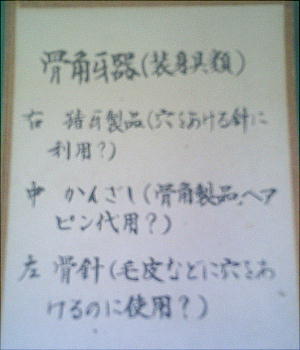 骨角牙器(装身具類)
右 猪牙製品(穴をあける針に
利用?)
中 かんざし(骨角製品.ヘア
ピン代用?)
左 骨針(毛皮などに穴をあ
けるのに使用?)